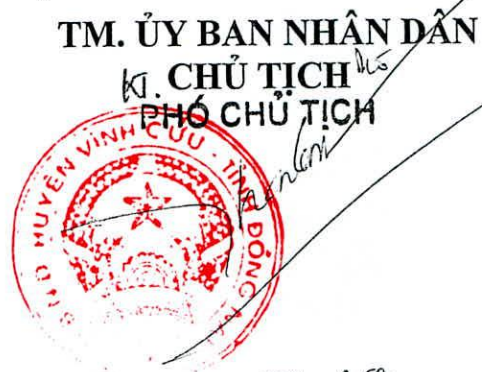 TM. ỦY BAN NHÂN DÂN
KT. CHỦ TỊCH
PHÓ CHỦ TỊCH
HUYỆN VĨNH CỬU - TỈNH ĐỒNG